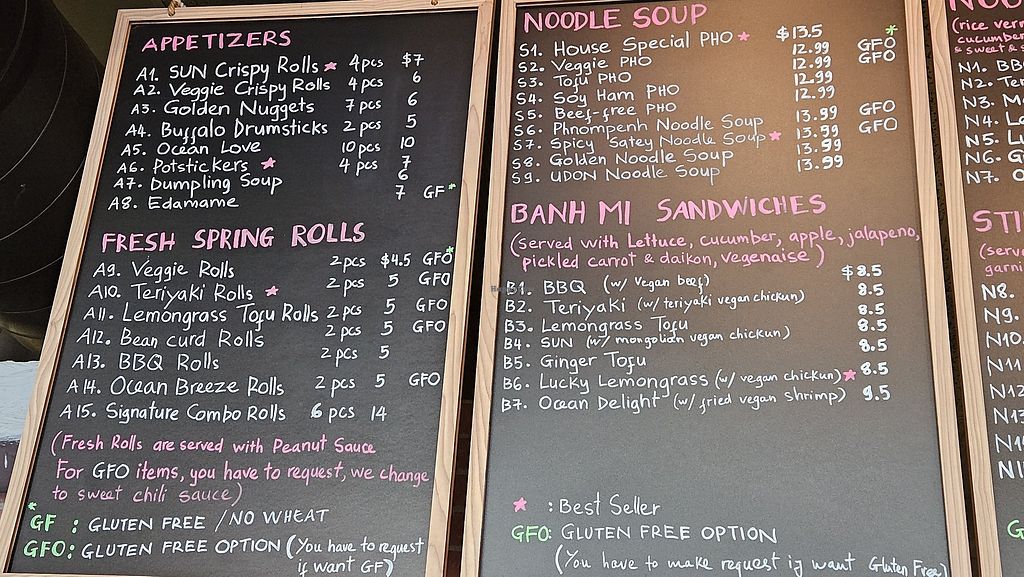 APPETIZERS
A1. SUN Crispy Rolls ★ 4pcs $7
A2. Veggie Crispy Rolls 4pcs 6
A3. Golden Nuggets 7 pcs 6
A4. Buffalo Drumsticks 2 pcs 5
A5. Ocean Love 10 pcs 10
A6. Potstickers ★ 4 pcs 7
A7. Dumpling Soup 6
A8. Edamame 7 GF*
FRESH SPRING ROLLS
A9. Veggie Rolls 2pcs $4.5 GFO*
A10. Teriyaki Rolls ★ 2pcs 5 GFO
A11. Lemongrass Tofu Rolls 2pcs 5 GFO
A12. Bean curd Rolls 2pcs 5 GFO
A13. BBQ Rolls 2pcs 5
A14. Ocean Breeze Rolls 2 pcs 5 GFO
A15. Signature Combo Rolls 6 pcs 14
(Fresh Rolls are served with Peanut Sauce
For GFO items, you have to request, we change
to sweet chili sauce)
*GF : GLUTEN FREE / NO WHEAT
GFO: GLUTEN FREE OPTION (You have to request
if want GF)
NOODLE SOUP
S1. House Special PHO ★ $13.5 GFO*
S2. Veggie PHO 12.99 GFO
S3. Tofu PHO 12.99
S4. Soy Ham PHO 12.99
S5. Beef-free PHO 12.99
S6. Phnompenh Noodle Soup 13.99 GFO
S7. Spicy Satey Noodle Soup ★ 13.99 GFO
S8. Golden Noodle Soup 13.99
S9. UDON Noodle Soup 13.99
BANH MI SANDWICHES
(served with Lettuce, cucumber, apple, jalapeno,
pickled carrot & daikon, vegenaise)
B1. BBQ (w/ vegan beef) $8.5
B2. Teriyaki (w/ teriyaki vegan chickun) 8.5
B3. Lemongrass Tofu 8.5
B4. SUN (w/ mongolian vegan chickun) 8.5
B5. Ginger Tofu 8.5
B6. Lucky Lemongrass (w/ vegan chickun) ★ 8.5
B7. Ocean Delight (w/ fried vegan shrimp) 9.5
★ : Best Seller
GFO: GLUTEN FREE OPTION
(You have to make request if want Gluten Free)
(rice
cucumber
& sweet &
N1. BB
N2. Te
N3.
N4.
N5.
N6.
N7.
STI
(serv
garni
N8.
N9.
N10.
N11
N12
N13
N1